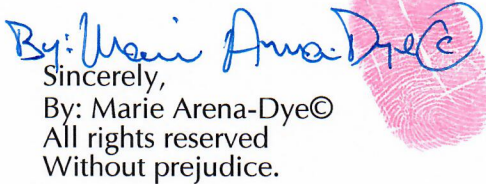 By: Marie Arena-Dye©
Sincerely,
By: Marie Arena-Dye©
All rights reserved
Without prejudice.